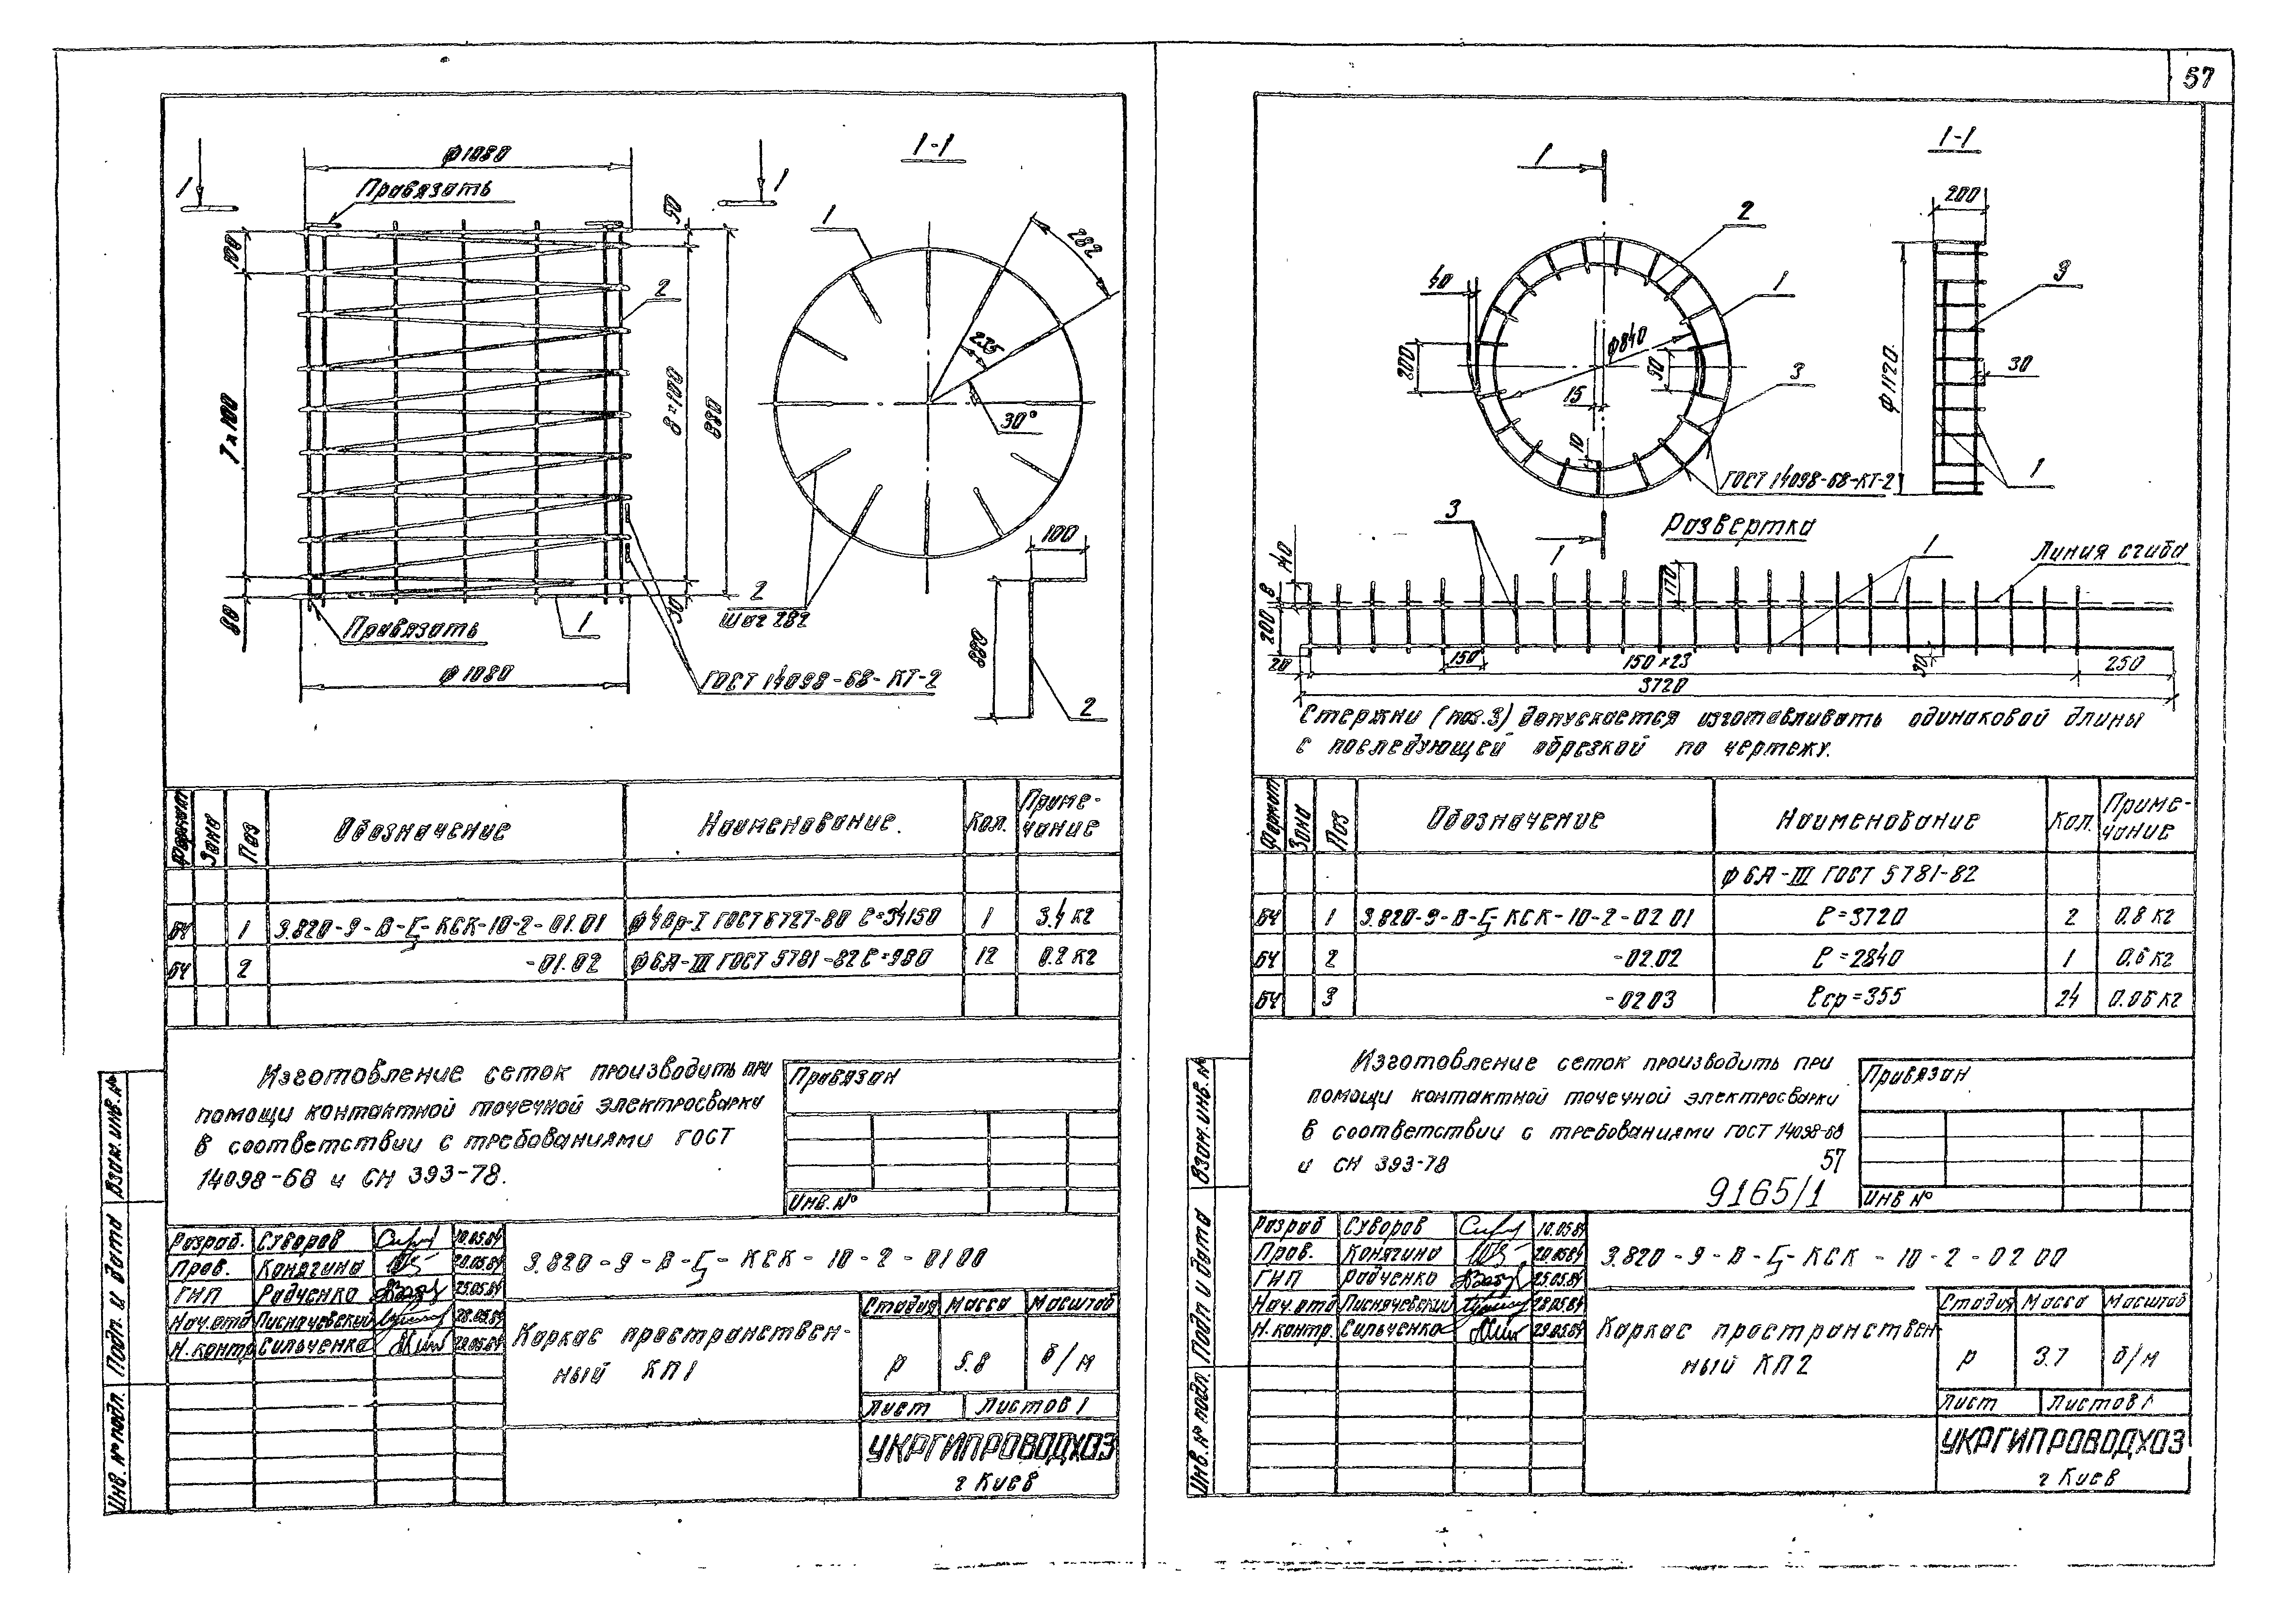 57
ф1080
Привязать
1
1
1-1
1
100
50
2
282
235
30°
7×100
8×100
880
80
30
Привязать
1
ф1080
2
шаг 282
ГОСТ 14098-68-КТ-2
100
880
2
Формат
Зона
Поз
Обозначение
Наименование.
Кол.
Приме-
чание
БЧ 1 3.820-9-В-Ц-КСК-10-2-01.01 ф4Вр-I ГОСТ 6727-80 ℓ=34150 1 3.4 кг
БЧ 2 -01.02 ф6А-III ГОСТ 5781-82 ℓ=980 12 0.2 кг
Изготовление сеток производить при
помощи контактной точечной электросварки
в соответствии с требованиями ГОСТ
14098-68 и СН 393-78.
Привязан
Инв. №
Разраб. Суворов 10.05.84
Пров. Конягина 20.05.84
ГИП Радченко 25.05.84
Нач.отд 28.05.84
Н.контр Сильченко 29.05.84
3.820-9-В-Ц-КСК-10-2-01 00
Каркас пространствен-
ный КП1
Стадия Масса Масштаб
р 5.8 б/м
Лист Листов 1
УКРГИПРОВОДХОЗ
г Киев
Взам. инв. №
Подп. и дата
Инв. № подл.
1
1-1
200
2
1
3
40
ф840
200
90
15
10
3
ф1120
30
1
ГОСТ 14098-68-КТ-2
1
Развертка
3
1
Линия сгиба
140
8
200
20
170
150
150×23
30
250
3720
Стержни (поз.3) допускается изготавливать одинаковой длины
с последующей обрезкой по чертежу.
Формат
Зона
Поз
Обозначение
Наименование
Кол.
Приме-
чание
ф6А-III ГОСТ 5781-82
БЧ 1 3.820-9-В-Ц-КСК-10-2-02 01 ℓ=3720 2 0.8 кг
БЧ 2 -02.02 ℓ=2840 1 0,6 кг
БЧ 3 -02 03 ℓср=355 24 0.06 кг
Изготовление сеток производить при
помощи контактной точечной электросварки
в соответствии с требованиями ГОСТ 14098-68
и СН 393-78
57
9165/1
Привязан
Инв №
Разраб Суворов 10.05.84
Пров. Конягина 20.05.84
ГИП Радченко 25.05.84
Нач.отд 28.05.84
Н.контр. Сильченко 29.05.84
3.820-9-В-Ц-КСК-10-2-02 00
Каркас пространствен
ный КП2
Стадия Масса Масштаб
р 3.7 б/м
Лист Листов 1
УКРГИПРОВОДХОЗ
г Киев
Взам. инв. №
Подп и дата
Инв. № подл.